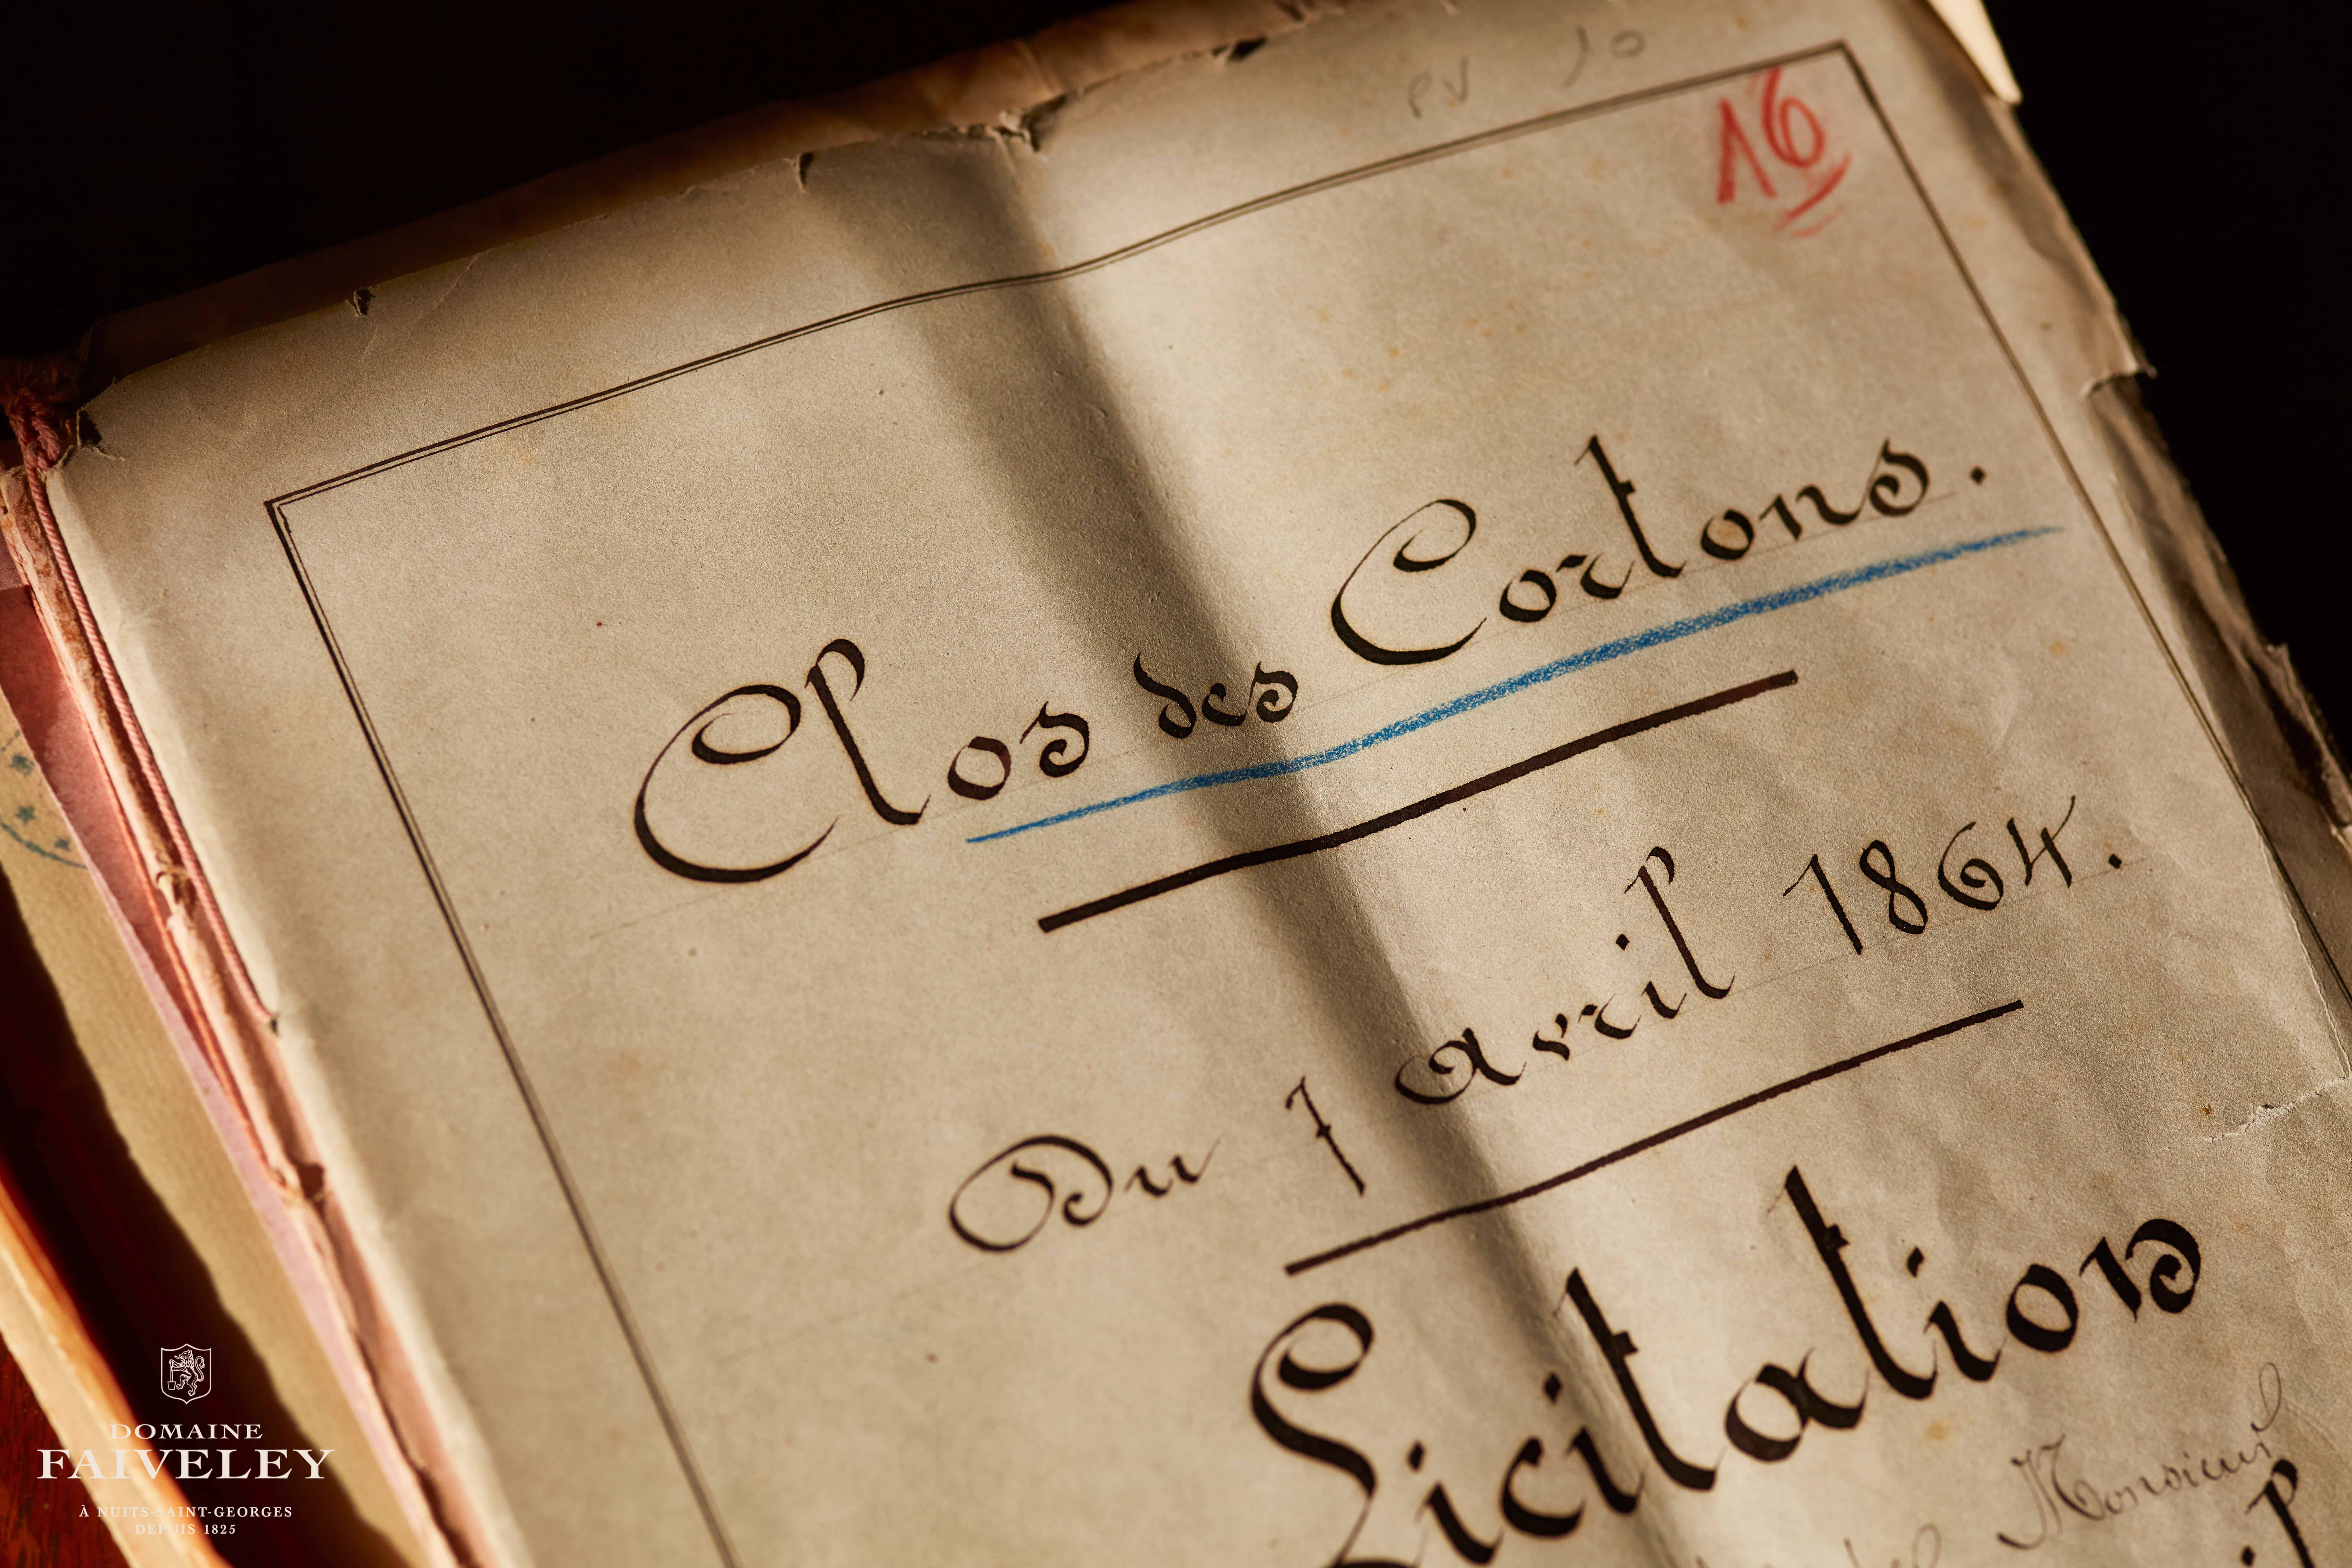 PV 10
16
Clos des Cortons.
Du 1 avril 1864.
Licitation
Monsieur
DOMAINE
FAIVELEY
À NUITS-SAINT-GEORGES
DEPUIS 1825